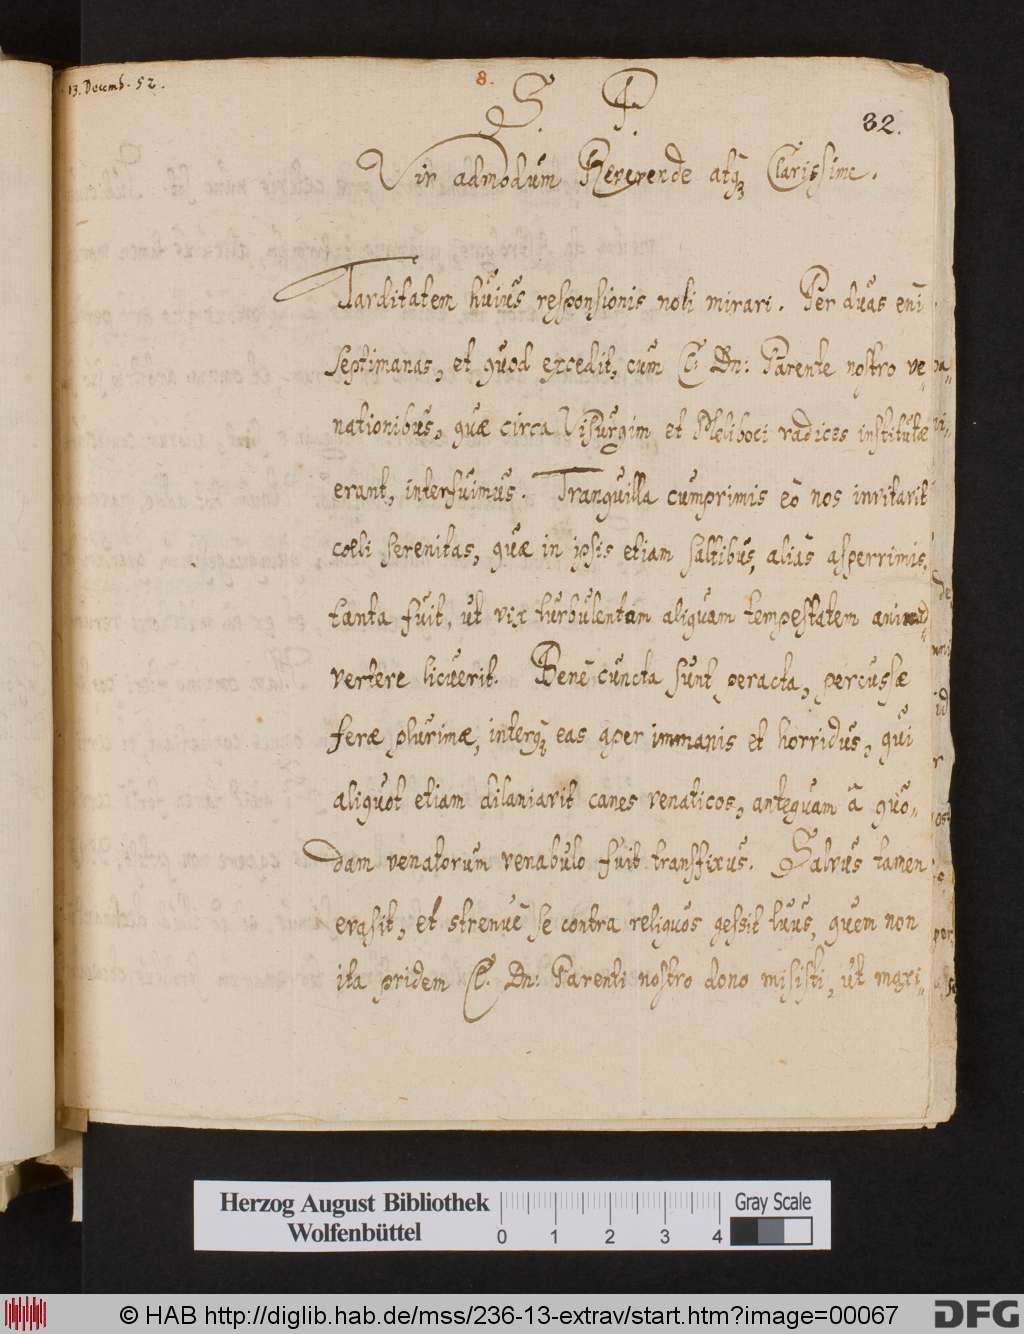 13. Decemb. 52.
8.
S. P.
32.
Vir admodum Reverende atq3 Clarissime.
Tarditatem huius responsionis noli mirari. Per duas enī
septimanas, et quod excedit, cum C. Dn: Parente nostro ve=
nationibus, quæ circa Visurgim et Meliboci radices institutæ
erant, interfuimus. Tranquilla cumprimis eō nos invitavit
cœli serenitas, quæ in ipsis etiam saltibus, aliās asperrimis,
tanta fuit, ut vix turbulentam aliquam tempestatem animad=
vertere licuerit. Benē cuncta sunt peracta, percussæ
feræ plurimæ, interq3 eas aper immanis et horridus, qui
aliquot etiam dilaniavit canes venaticos, antequam ā quō=
dam venatorum venabulo fuit transfixus. Salvus tamen
evasit, et strenuē se contra reliquos gessit tuus, quem non
ita pridem C. Dn: Parenti nostro dono misisti, ut maxi=
Herzog August Bibliothek
Wolfenbüttel
0 1 2 3 4
Gray Scale
© HAB http://diglib.hab.de/mss/236-13-extrav/start.htm?image=00067
DFG